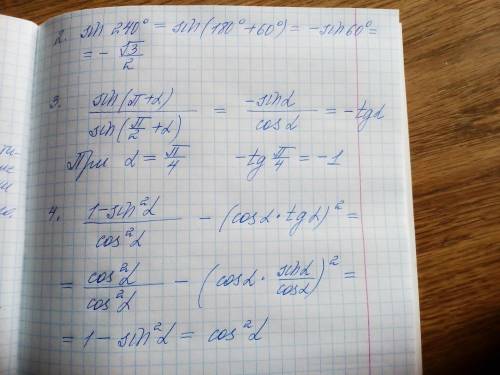 2. sin 240° = sin(180° + 60°) = -sin 60° =
= - √3/2
3. sin(π+α)/sin(π/2+α) = -sinα/cosα = -tgα
При α = π/4 -tg π/4 = -1
4. (1-sin²α)/cos²α - (cosα · tgα)² =
= cos²α/cos²α - (cosα · sinα/cosα)² =
= 1 - sin²α = cos²α